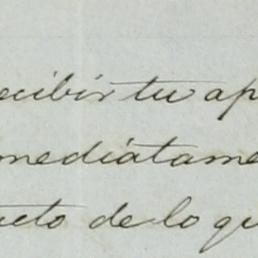 ecibir tu ap
mediatame
cto de lo qu